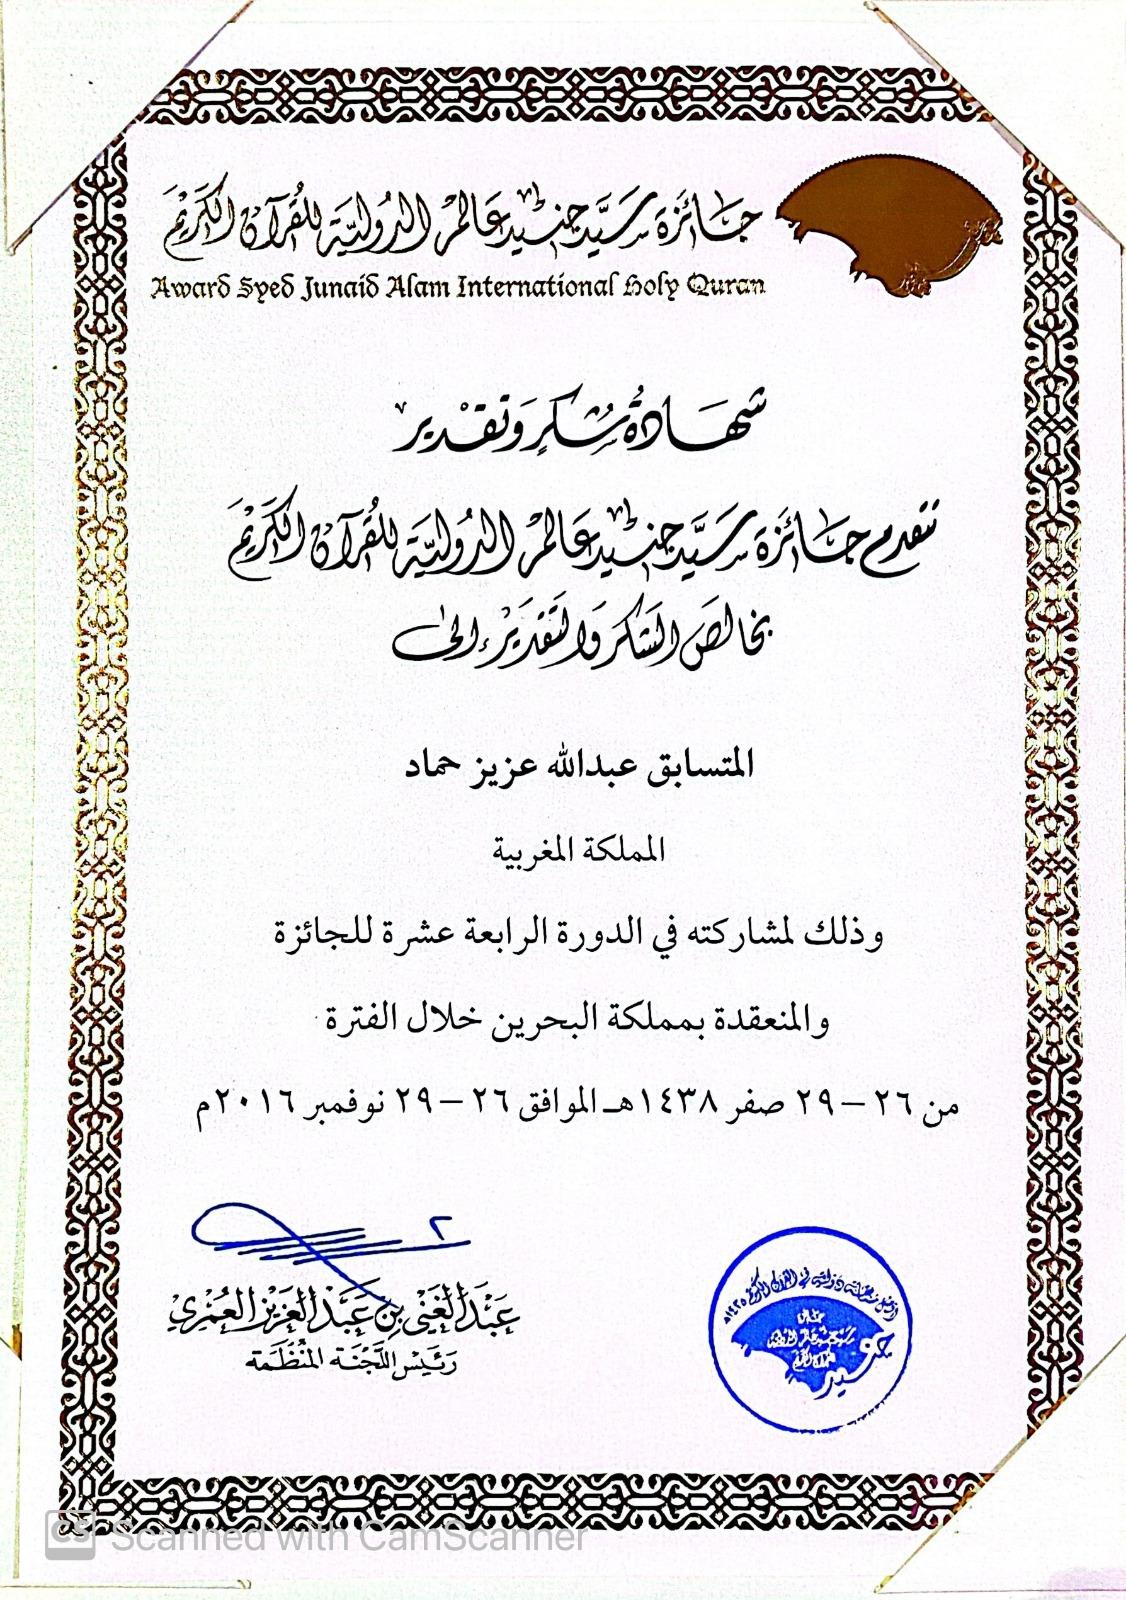 جَائزة سَيّد جنيد عَالم الدُولِيَّة للقُرآن الكَريْم
Award Syed Junaid Alam International Holy Quran
شهَادةُ شُكرٍ وَتقْدير
تتقدم جَائَزة سَيَّد جنيد عَالمْ الدُوليَّة للقُرآن الكَريْم
بخالصَ الشكر وَالتَقديْر إلى
المتسابق عبدالله عزيز حماد
المملكة المغربية
وذلك لمشاركته في الدورة الرابعة عشرة للجائزة
والمنعقدة بمملكة البحرين خلال الفترة
من ٢٦ – ٢٩ صفر ١٤٣٨هـ الموافق ٢٦ – ٢٩ نوفمبر ٢٠١٦م
عَبْدالغَني بن عَبْدالعَزيز العُمَري
رَئيس اللَّجْنَة المُنَظّمَة
جنيد
CS Scanned with CamScanner